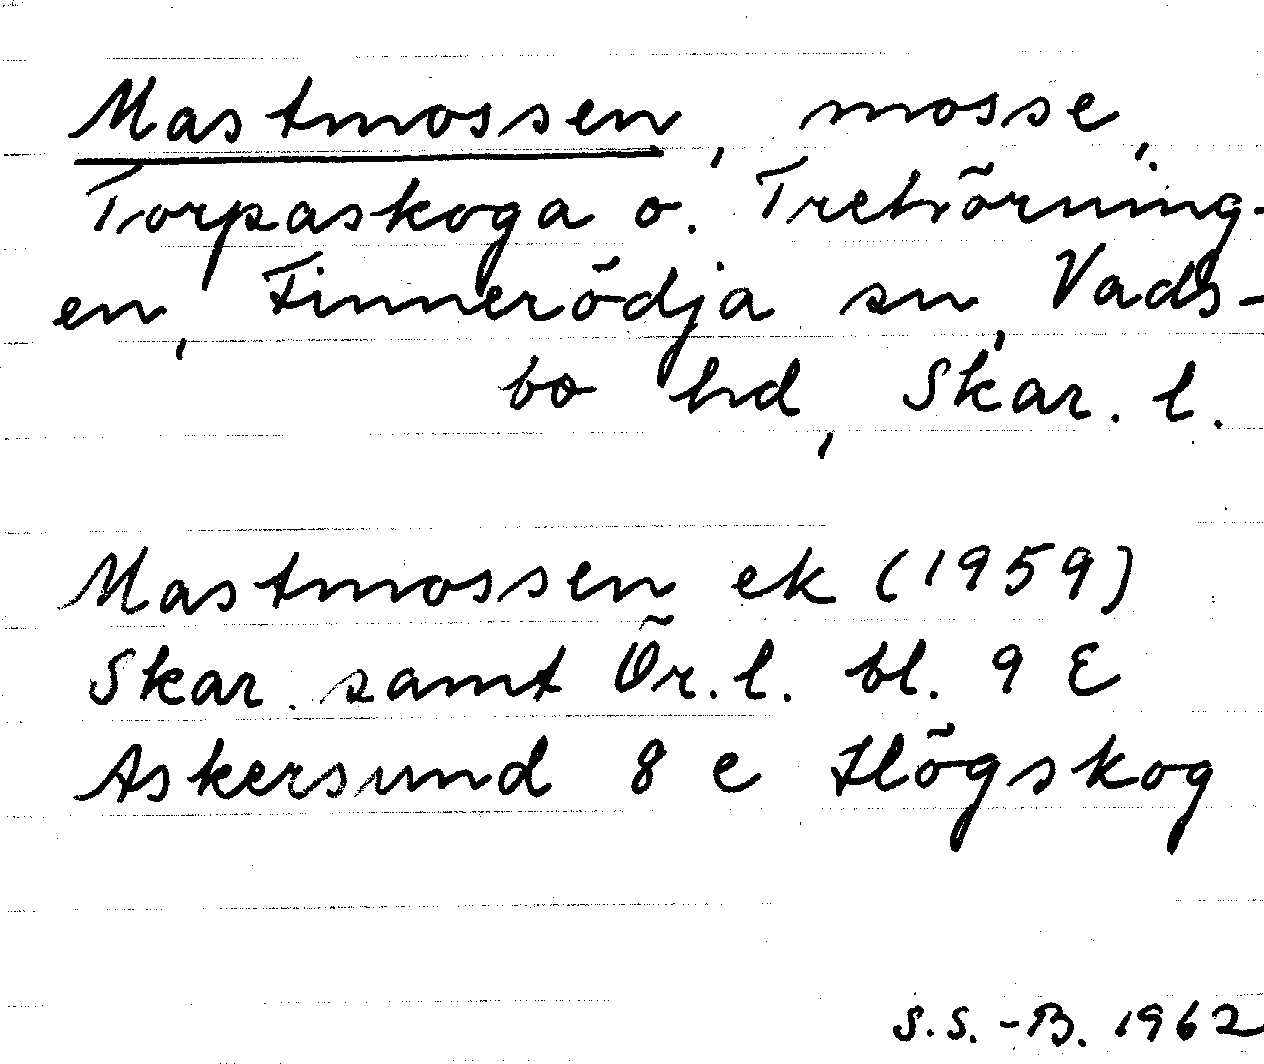 Mastmossen, mosse,
Torpaskoga o. Trehörning-
en, Finnerödja sn, Vads-
bo hd, Skar. l.
Mastmossen ek (1959)
Skar. samt Ör. l. bl. 9 E
Askersund 8 e Högskog
S.S.-B. 1962